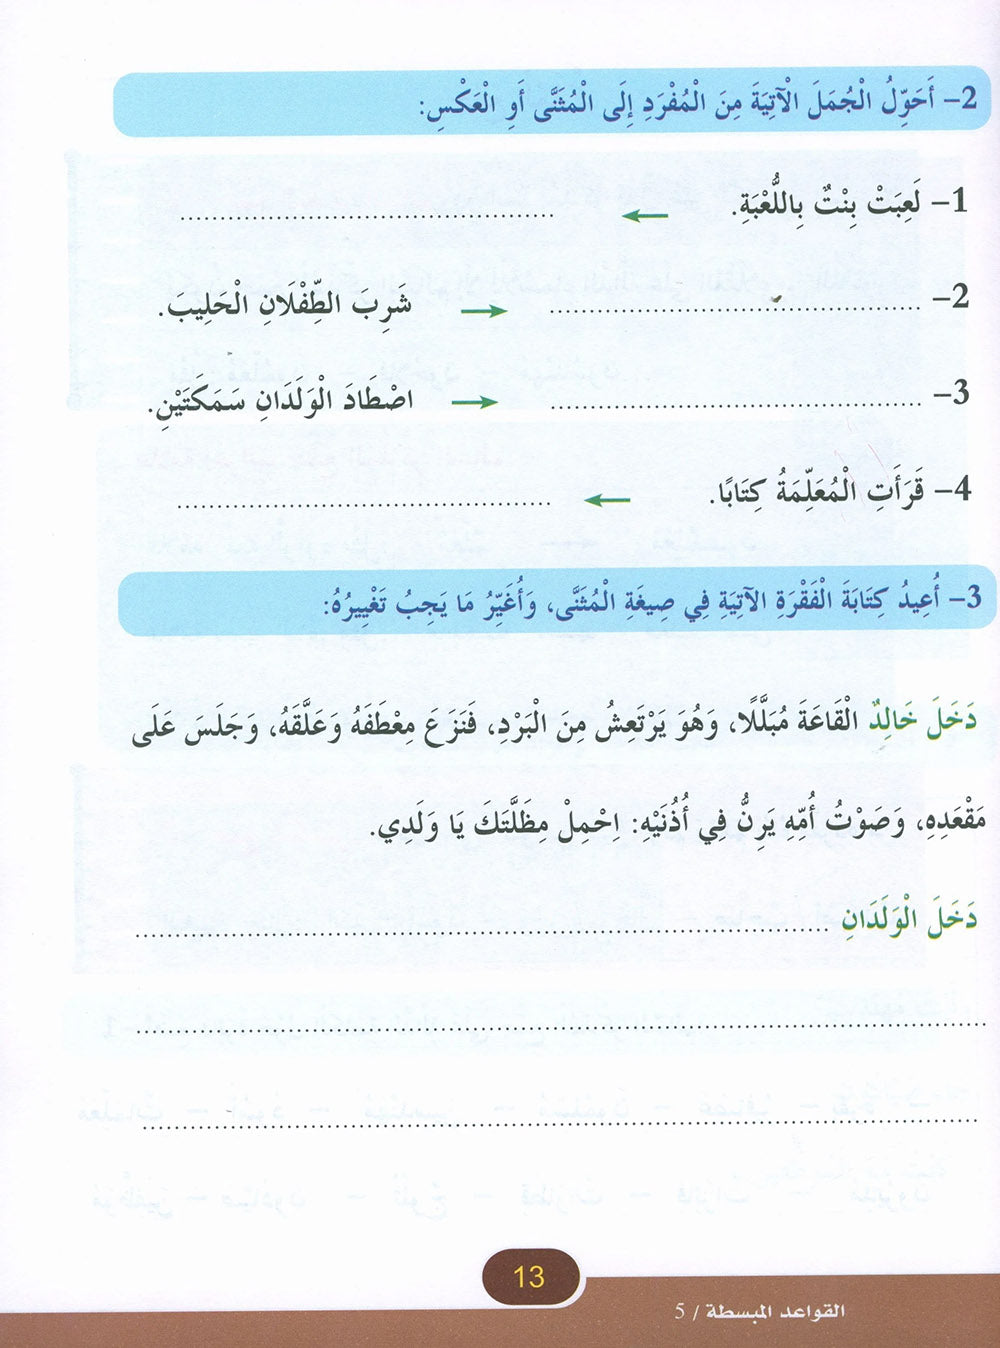 2- أَحَوِّلُ الْجُمَلَ الْآتِيَةَ مِنَ الْمُفْرَدِ إِلَى الْمُثَنَّى أَوِ الْعَكْسِ:
1- لَعِبَتْ بِنْتٌ بِاللُّعْبَةِ. ← ........................................
2- ........................................ → شَرِبَ الطِّفْلَانِ الْحَلِيبَ.
3- ........................................ → اصْطَادَ الْوَلَدَانِ سَمَكَتَيْنِ.
4- قَرَأَتِ الْمُعَلِّمَةُ كِتَابًا. ← ........................................
3- أُعِيدُ كِتَابَةَ الْفَقْرَةِ الآتِيَةِ فِي صِيغَةِ الْمُثَنَّى، وَأُغَيِّرُ مَا يَجِبُ تَغْيِيرُهُ:
دَخَلَ خَالِدٌ الْقَاعَةَ مُبَلَّلًا، وَهُوَ يَرْتَعِشُ مِنَ الْبَرْدِ، فَنَزَعَ مِعْطَفَهُ وَعَلَّقَهُ، وَجَلَسَ عَلَى
مَقْعَدِهِ، وَصَوْتُ أُمِّهِ يَرِنُّ فِي أُذُنَيْهِ: اِحْمِلْ مِظَلَّتَكَ يَا وَلَدِي.
دَخَلَ الْوَلَدَانِ ........................................
13
القواعد المبسطة / 5